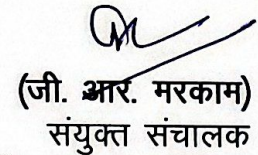 (जी. आर. मरकाम)
संयुक्त संचालक